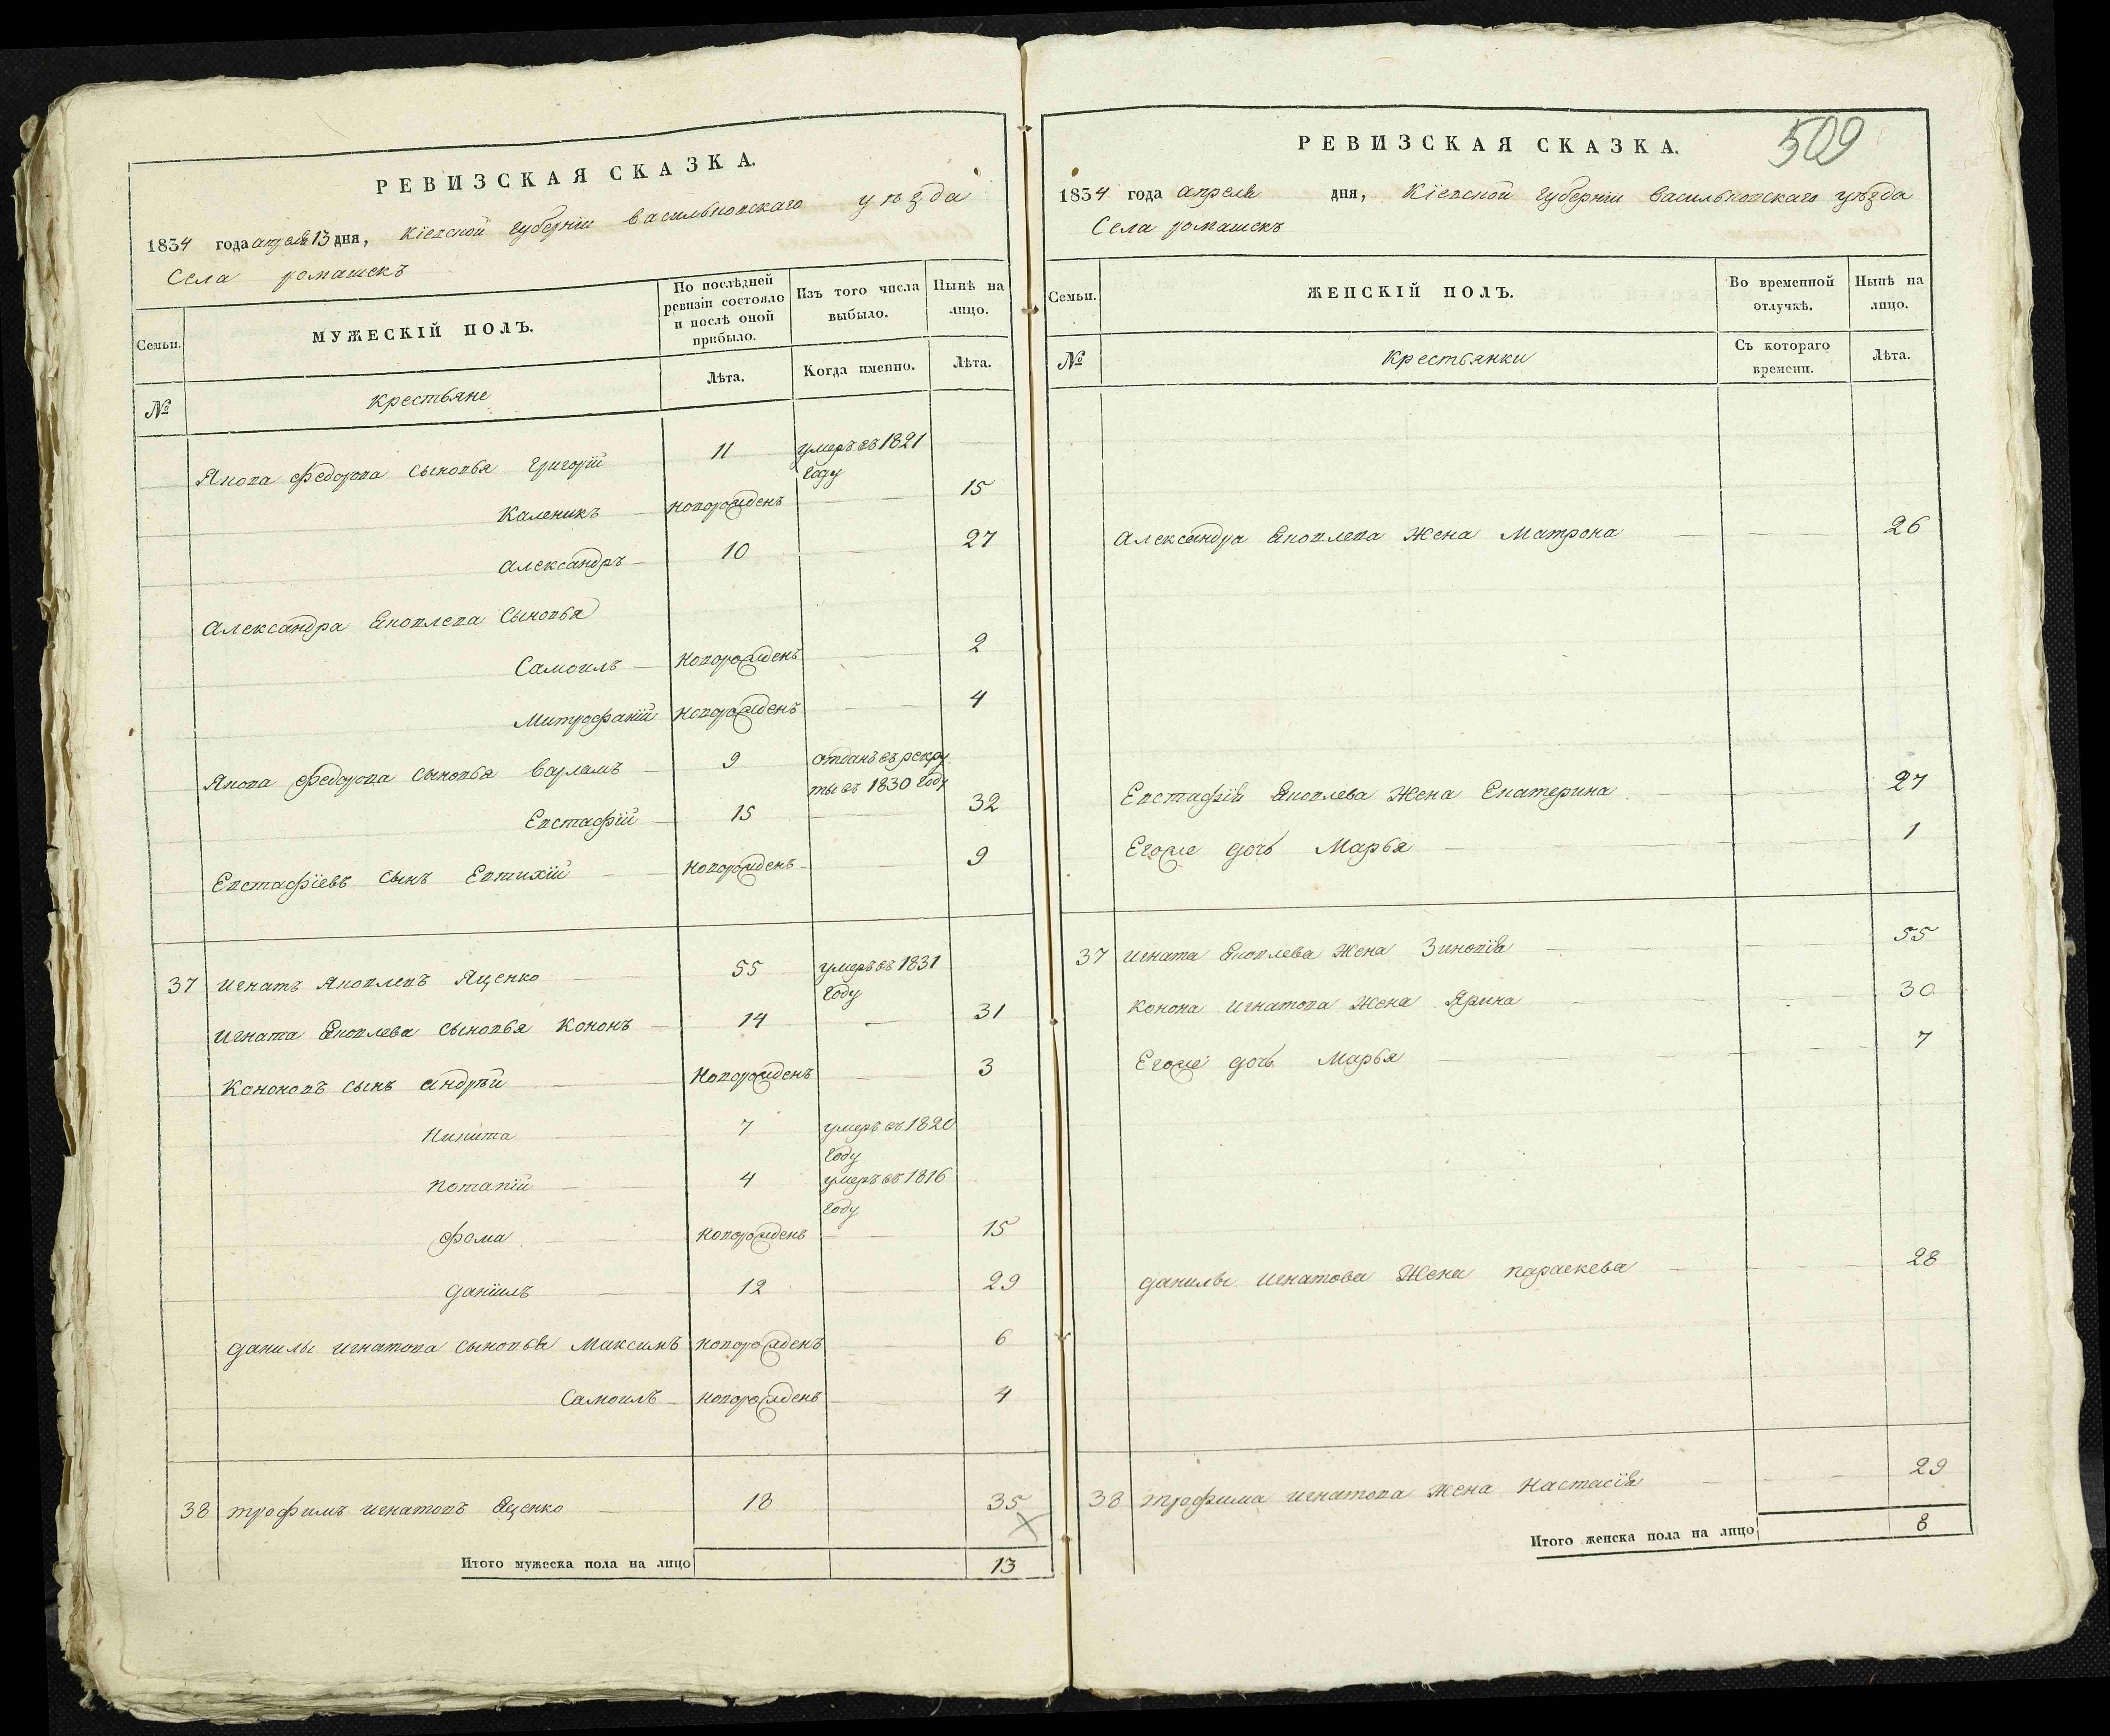 РЕВИЗСКАЯ СКАЗКА.
1834 года апреля 13 дня, Кіевской губерніи васильковскаго уѣзда
Села ромашекъ
Семьи.
МУЖЕСКІЙ ПОЛЪ.
По послѣдней ревизіи состояло и послѣ оной прибыло.
Изъ того числа выбыло.
Нынѣ на лицо.
№
Крестьяне
Лѣта.
Когда именно.
Лѣта.
Якова Федорова сыновья Григорій 11 умеръ въ 1821 году
Каленикъ новорожденъ 15
Александръ 10 27
Александра Яковлева Сыновья
Самоилъ новорожденъ 2
Митрофаній новорожденъ 4
Якова Федорова сыновья варламъ 9 отданъ въ рекруты въ 1830 году
Евстафій 15 32
Евстафіевъ сынъ Евтихій новорожденъ 9
37 Игнатъ Яковлевъ Яценко 55 умеръ въ 1831 году
Игната Яковлева сыновья Кононъ 14 31
Кононовъ сынъ андрѣй новорожденъ 3
Никита 7 умеръ въ 1820 году
Потапій 4 умеръ въ 1816 году
Фома новорожденъ 15
Даніилъ 12 29
Данилы Игнатова сыновья Максимъ новорожденъ 6
Самоилъ новорожденъ 4
38 трофимъ игнатовъ Яценко 18 35
Итого мужеска пола на лицо 13
РЕВИЗСКАЯ СКАЗКА.
509
1834 года апреля дня, Кіевской губерніи васильковскаго уѣзда
Села ромашекъ
Семьи.
ЖЕНСКІЙ ПОЛЪ.
Во временной отлучкѣ.
Нынѣ на лицо.
№
Крестьянки
Съ котораго времени.
Лѣта.
Александра Яковлева жена Матрона 26
Евстафія Яковлева жена Екатерина 27
Егоже дочь Марья 1
37 Игната Яковлева жена Зиновія 55
Конона Игнатова жена Ярина 30
Егоже дочь Марья 7
Данилы Игнатова жена параскева 28
38 трофима игнатова жена Настасія 29
Итого женска пола на лицо 8